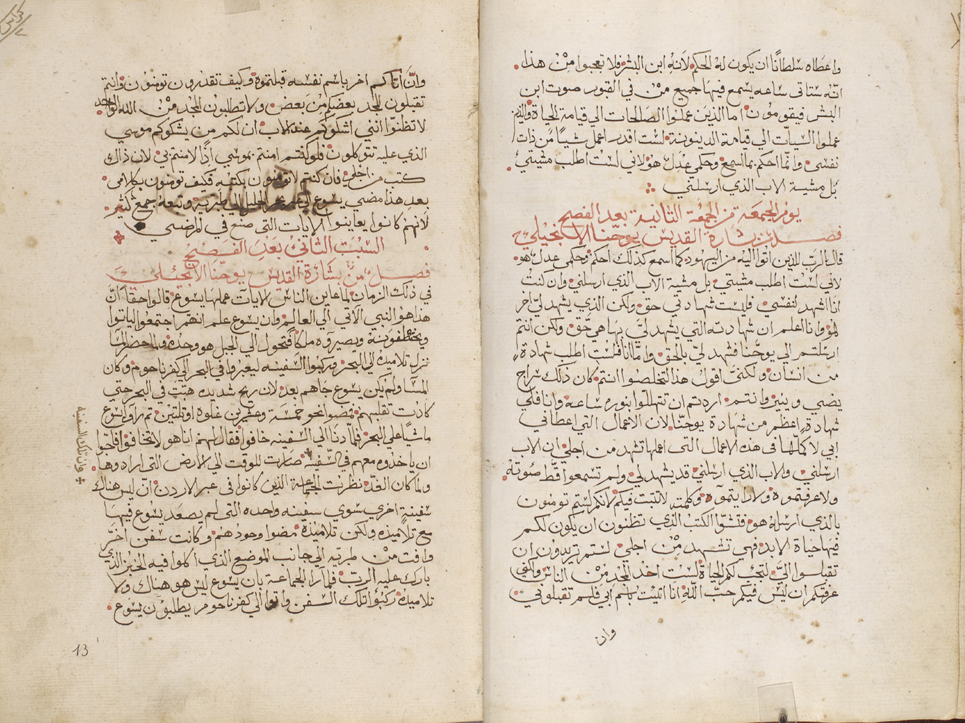 واعطاه سلطانًا ان يكون له الحكم لانه ابن البشر فلا تعجبوا من هذا
انه ستاتى ساعه يسمع فيها جميع من في القبور صوت ابن
البشر فيقومون اما الذين عملوا الصالحات الي قيامة الحياة والذين
عملوا السيات الي قيامة الدينونة لست اقدر اعمل شيًا من ذات
نفسي وانما احكم بما اسمع وحكمي عدل هو لاني لست اطلب مشيتي
بل مشية الاب الذي ارسلني
يوم الجمعة من الجمعة الثانية بعد الفصح
فصل من بشارة القديس يوحنا الانجيلي
قال الرب للذين اتوا اليه من اليهود كما اسمع كذلك احكم وحكمي عدل هو
لاني لست اطلب مشيتي بل مشية الاب الذي ارسلني وان كنت
انا اشهد لنفسي فليست شهادتي حق ولكن الذي يشهد لي اخر
هو وانا اعلم ان شهادته التي يشهد لي بها هي حق ولكن انتم
ارسلتم الي يوحنا فشهد لي بالحق وانما انا فلست اطلب شهادة
من انسان ولكني اقول هذا لتخلصوا انتم كان ذلك سراج
يضي وينير وانتم اردتم ان تتهللوا بنوره ساعه وانا فلي
شهادة اعظم من شهادة يوحنا لان الاعمال التي اعطاني
ابي لاكملها في هذه الاعمال التي اعملها تشهد من اجلي ان الاب
ارسلني والاب الذي ارسلني قد يشهد لي ولم تسمعوا قط صوته
ولا عرفتموه ولا رايتموه وكلمته لا تثبت فيكم لانكم لستم تومنون
بالذي ارسله هو فتشوا الكتب الذي تظنون ان يكون لكم
فيها حياة الابد فهي تشهد من اجلي لستم تريدون ان
تقبلوا اليّ لتجب لكم الحياة لست اخذ المجد من الناس ولكني
عرفتكم ان ليس فيكم حب الله انا اتيت باسم ابي فلم تقبلوني
وان
وان اتاكم اخر باسم نفسه قبلتموه وكيف تقدرون تومنون وانتم
تقبلون المجد بعضكم من بعض ولا تطلبون المجد من الله الواحد
لا تظنوا انني اشكوكم عند الاب ان لكم من يشكوكم موسي
الذي عليه تتوكلون فلو كنتم امنتم بموسي اذًا لامنتم بي لان ذاك
كتب من اجلي فان كنتم لا تومنون بكتبه فكيف تومنون بكلامي
بعد هذا مضي يسوع الي بحر الجليل الي طبرية وتبعه جمع كثير
لانهم كانوا يعاينوا الايات التي صنع في المرضي
السبت الثاني بعد الفصح
فصل من بشارة القديس يوحنا الانجيلي
في ذلك الزمان لما عاين الناس الايات عملها يسوع قالوا حقًا ان
هذا هو النبي الاتي الي العالم وان يسوع علم انهم اجتمعوا لياتوا
ويختطفونه ويصيروه ملكًا فتحول الي الجبل هو وحده ولما حضر المسا
نزل تلاميذه الي البحر وركبوا السفينه ليعبروا في البحر الي كفرناحوم وكان
المسا ولم يكن يسوع جاهم بعد لان ريح شديد هبت في البحر حتي
كادت تقلبهم فمضوا نحو خمسة وعشرين غلوه او ثلثين ثم راوا يسوع
ماشيًا علي البحر فلما دنا الي السفينه خافوا فقال لهم انا هو لا تخافوا فاحبوا
ان ياخذوه معهم في السفينة صارت للوقت الي الارض التي ارادوها
وتلك السفينة
ولما كان الغد نظرت الجماعة الذين كانوا في عبر الاردن ان ليس هناك
سفينة اخري سوي سفينه واحده التي لم يصعد يسوع فيها
مع تلاميذه ولكن تلاميذه مضوا وحدهم وكانت سفن اخر
وافت من طبريه الي جانب الموضع الذي اكلوا فيه الخبز الذي
بارك عليه الرب فلما را الجماعة بان يسوع ليس هو هناك ولا
تلاميذه ركبوا تلك السفن واتوا الي كفرناحوم يطلبون يسوع
13